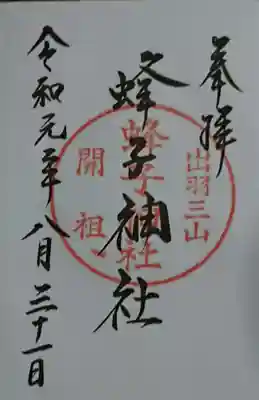 奉拝
出羽三山
蜂子神社
蜂子神社
開祖
令和元年八月三十一日